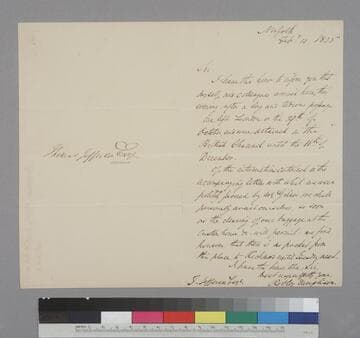 Norfolk
Feb.y 10 1825
Sir
I have the honor to inform you that
myself, and colleagues arrived here this
evening after a long and tedious passage
We left London on the 27th of
October and were detained in the
British Channel until the 16th of
December.
Of the introduction contained in the
accompanying letter with which we were
politely favored by Mr
personally avail ourselves as soon
as the clearing of our baggage at the
Custom house &c will permit
however that there is no
this place to Richmond until Sunday next.
I have the honor to be, Sir,
Robley Dunglison
T. Jefferson Esqr.
Thomas Jefferson Esqr